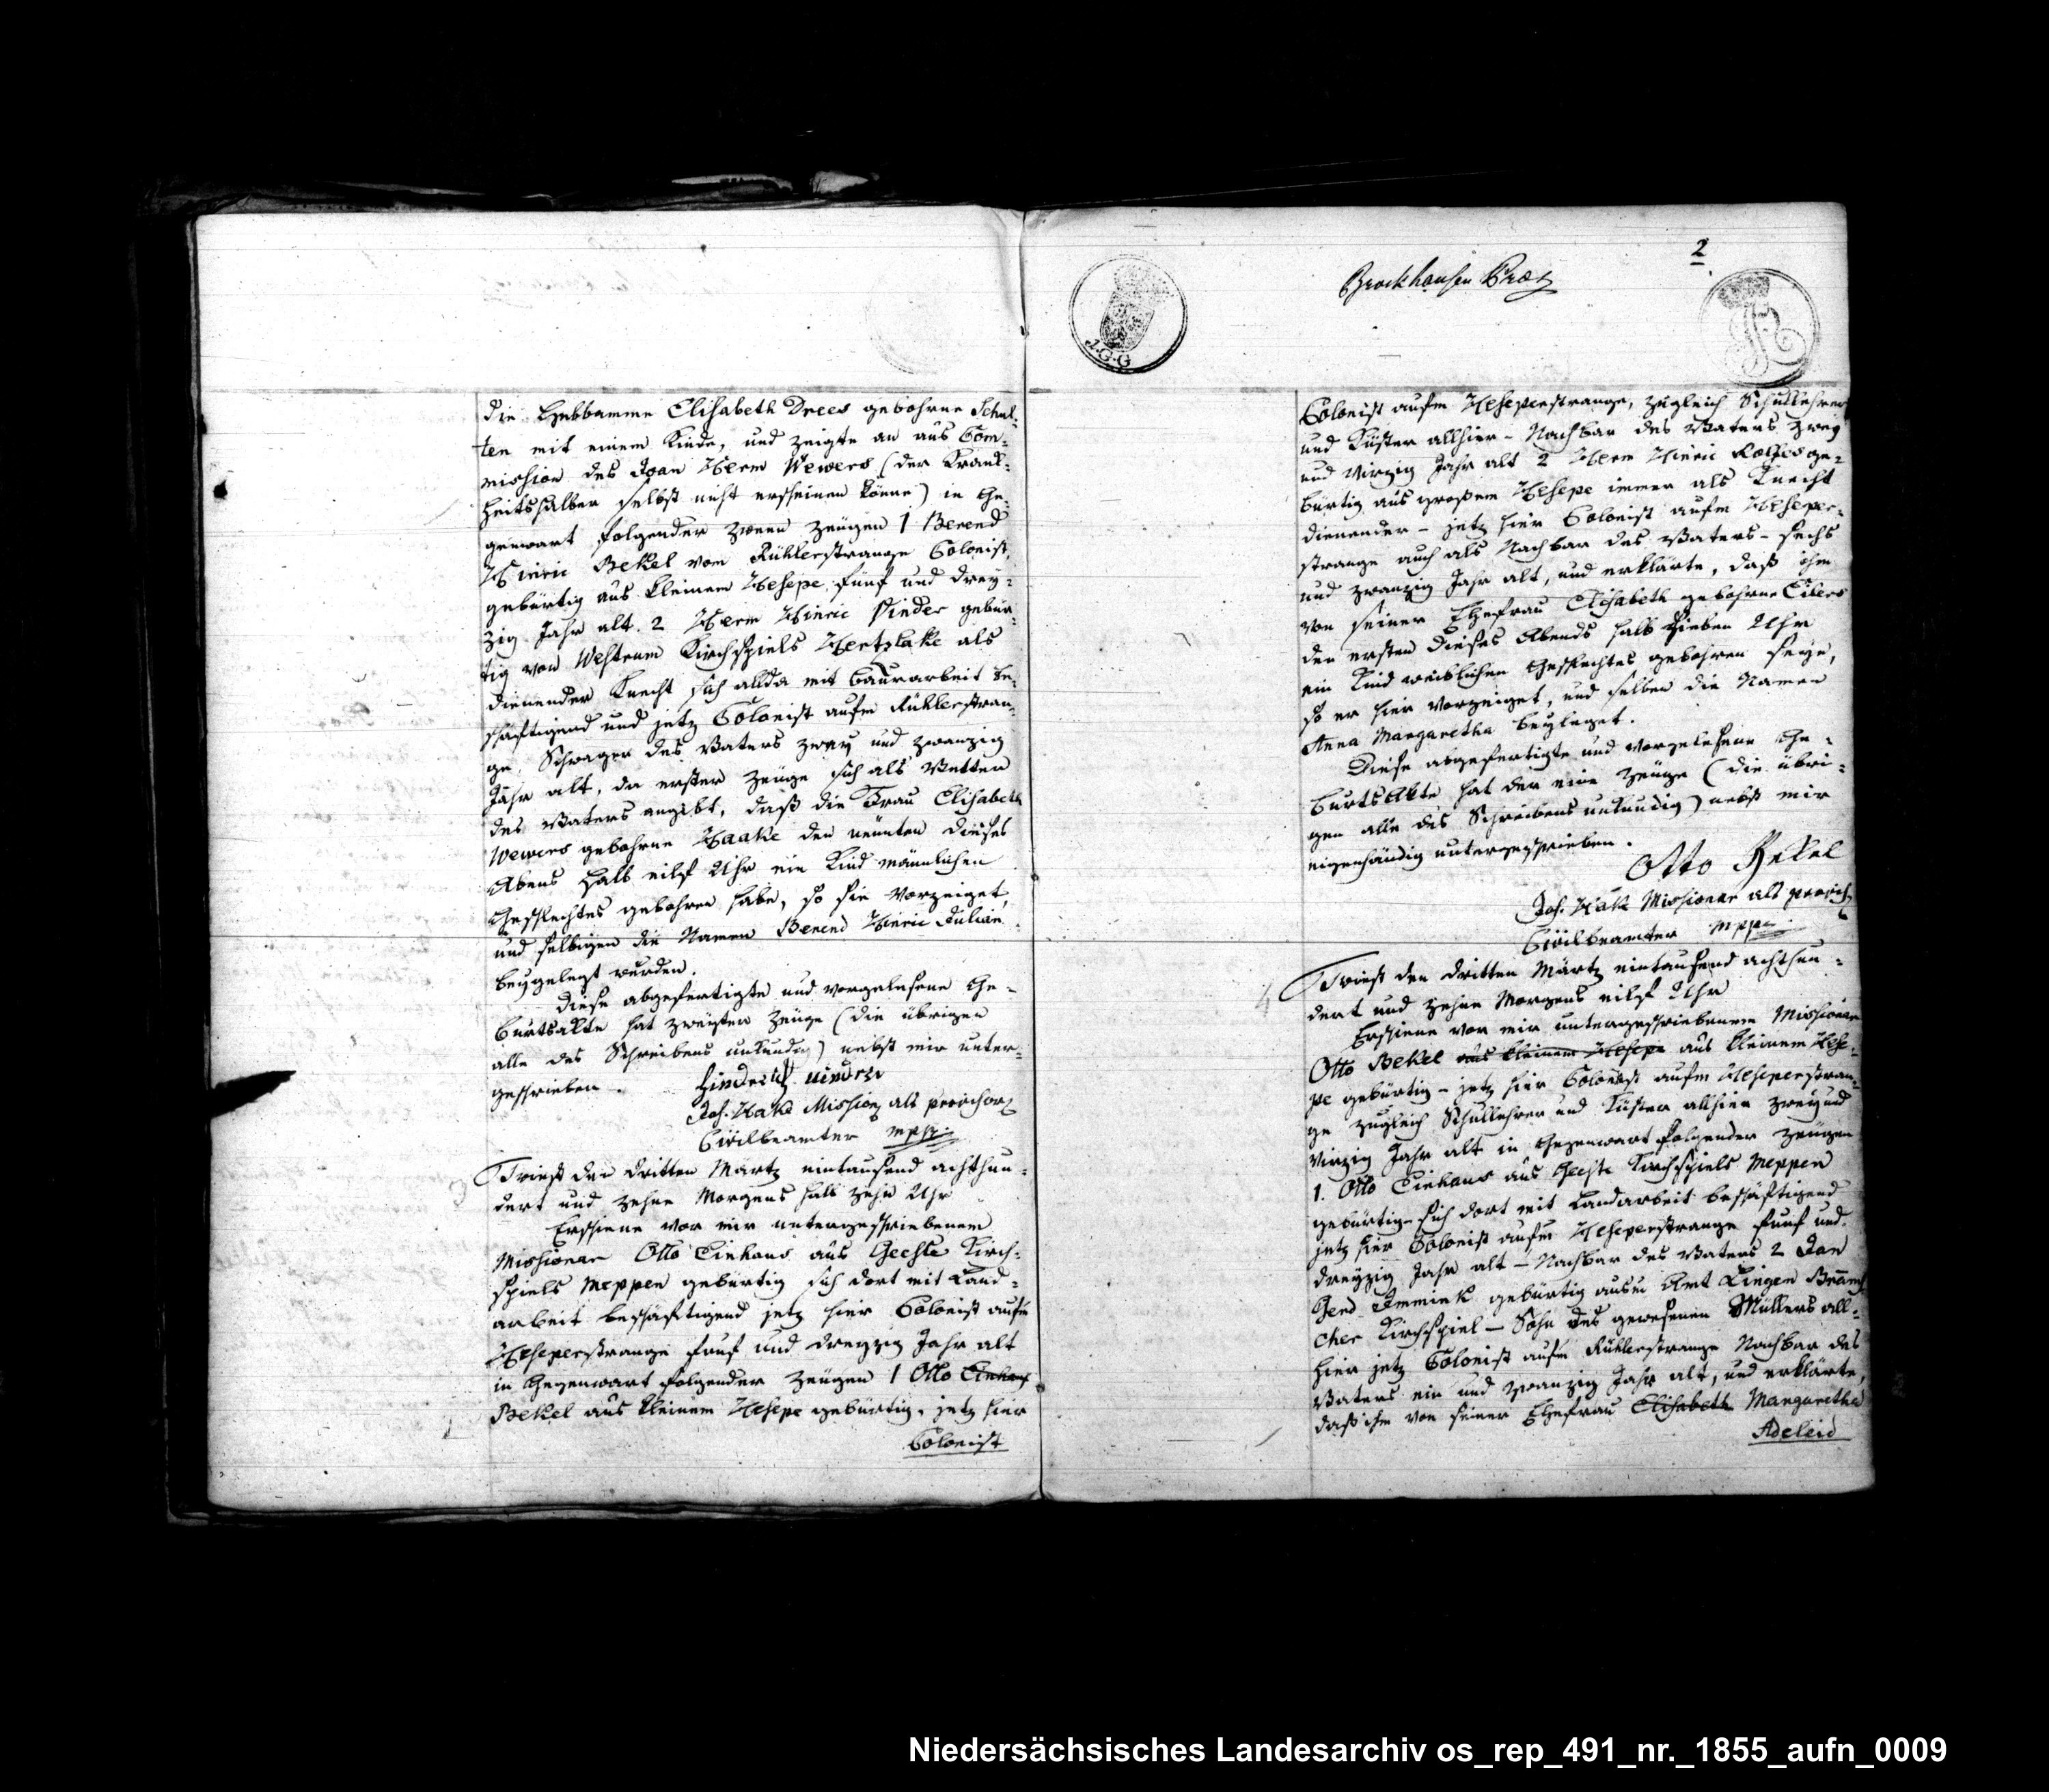 die Hebbamme Elisabeth Drees gebohrne Schul-
ten mit einem Kinde, und zeigte an aus Com-
mission des Joan Herm Wewers (der Krank-
heitshalber selbst nicht erscheinen könne) in Ge-
genwart folgender zween Zeugen 1 Berend
Hinric Bekel vom Rühlerstrange Colonist,
gebürtig aus kleinem Hesepe, fünf und drey-
zig Jahr alt. 2 Herm Hinric Vinder gebür-
tig von Westrum Kirchspiels Hertzlake als
dienender Knecht sich allda mit Baurarbeit be-
schäftigend und jetz Colonist aufm Rühlerstran-
ge, Schwager des Vaters zwey und zwanzig
Jahr alt, da erster Zeuge sich als Vetter
des Vaters angibt, daß die Frau Elisabeth
Wewers gebohrne Haake den neunten dieses
Abens halb eilf Uhr ein Kind männlichen
Geschlechtes gebohren habe, so sie vorzeiget,
und selbigen die Namen Berend Hinric Julian
beygelegt wurden.
Diese abgefertigte und vorgelesene Ge-
burtsakte hat zweyter Zeuge (die übrigen
alle des Schreibens unkundig) nebst mir unter-
geschrieben. Hinderich vinder
Joh. Hake Mission als provisor
Civilbeamter mppr
3 Twist den dritten Märtz eintausend achthun-
dert und zehne Morgens halb zehn Uhr
Erschiene vor mir untergeschriebenem
Missionar Otto Einhaus aus Geeste Kirch-
spiels Meppen gebürtig sich dort mit Land-
arbeit beschäftigend jetz hier Colonist aufm
Heseperstrange fünf und dreyzig Jahr alt
in Gegenwart folgender Zeugen 1 Otto Einhaus
Bekel aus kleinem Hesepe gebürtig, jetz hier
Colonist
2
Brockhausen Präs
J.G.G
Colonist aufm Heseperstrange, zugleich Schullehrer
und Küster allhier - Nachbar des Vaters zwey
und virzig Jahr alt 2 Herm Hinric Rolfes ge-
bürtig aus großem Hesepe immer als Knecht
dienender - jetz hier Colonist aufm Heseper-
strange auch als Nachbar des Vaters - sechs
und zwanzig Jahr alt, und erklärte, daß ihm
von seiner Ehefrau Elisabeth gebohrne Eilers
den ersten dieses Abends halb sieben Uhr
ein Kind weiblichen Geschlechtes gebohren seye,
so er hier vorzeiget, und selben die Namen
Anna Margaretha beyleget.
Diese abgefertigte und vorgelesene Ge-
burtsakte hat der eine Zeuge (die übri-
gen alle des Schreibens unkundig) nebst mir
eigenhändig untergeschrieben.
Otto Bekel
Joh. Hake Missionar als provis
Civilbeamter mppr
4 Twist den dritten Märtz eintausend achthun-
dert und zehne Morgens eilf Uhr
Erschiene vor mir untergeschriebenem Missionar
Otto Bekel aus kleinem Hesepe aus kleinem Hese-
pe gebürtig - jetz hier Colonist aufm Heseperstran-
ge zugleich Schullehrer und Küster allhier zwey und
virzig Jahr alt in Gegenwart folgender Zeugen
1. Otto Einhaus aus Geeste Kirchspiels Meppen
gebürtig - sich dort mit Landarbeit beschäftigend
jetz hier Colonist aufm Heseperstrange fünf und
dreyzig Jahr alt - Nachbar des Vaters 2 Jan
Gerd gebürtig ausm Amt Lingen Bramsch
cher Kirchspiel - Sohn des gewesenen Müllers all-
hier jetz Colonist aufm Rühlerstrange Nachbar des
Vaters ein und zwanzig Jahr alt, und erklärte,
daß ihm von seiner Ehefrau Elisabeth Margaretha
Adeleid
Niedersächsisches Landesarchiv os_rep_491_nr._1855_aufn_0009